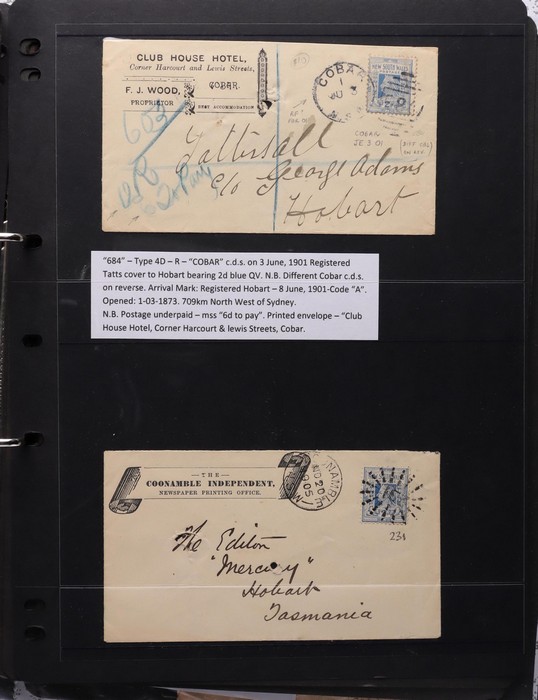 CLUB HOUSE HOTEL,
Corner Harcourt and Lewis Streets,
COBAR.
F. J. WOOD,
PROPRIETOR
BEST ACCOMMODATION
COBAR
NEW SOUTH WALES
603
R
6d to Pay
COBAR
JE 3 01
(DIFF CDS)
ON REV.
Tattersall
c/o George Adams
Hobart
"684" – Type 4D – R – "COBAR" c.d.s. on 3 June, 1901 Registered
Tatts cover to Hobart bearing 2d blue QV. N.B. Different Cobar c.d.s.
on reverse. Arrival Mark: Registered Hobart – 8 June, 1901-Code "A".
Opened: 1-03-1873. 709km North West of Sydney.
N.B. Postage underpaid – mss "6d to pay". Printed envelope – "Club
House Hotel, Corner Harcourt & lewis Streets, Cobar.
—THE—
COONAMBLE INDEPENDENT,
NEWSPAPER PRINTING OFFICE.
NO 20
The Editor
"Mercury"
Hobart
Tasmania